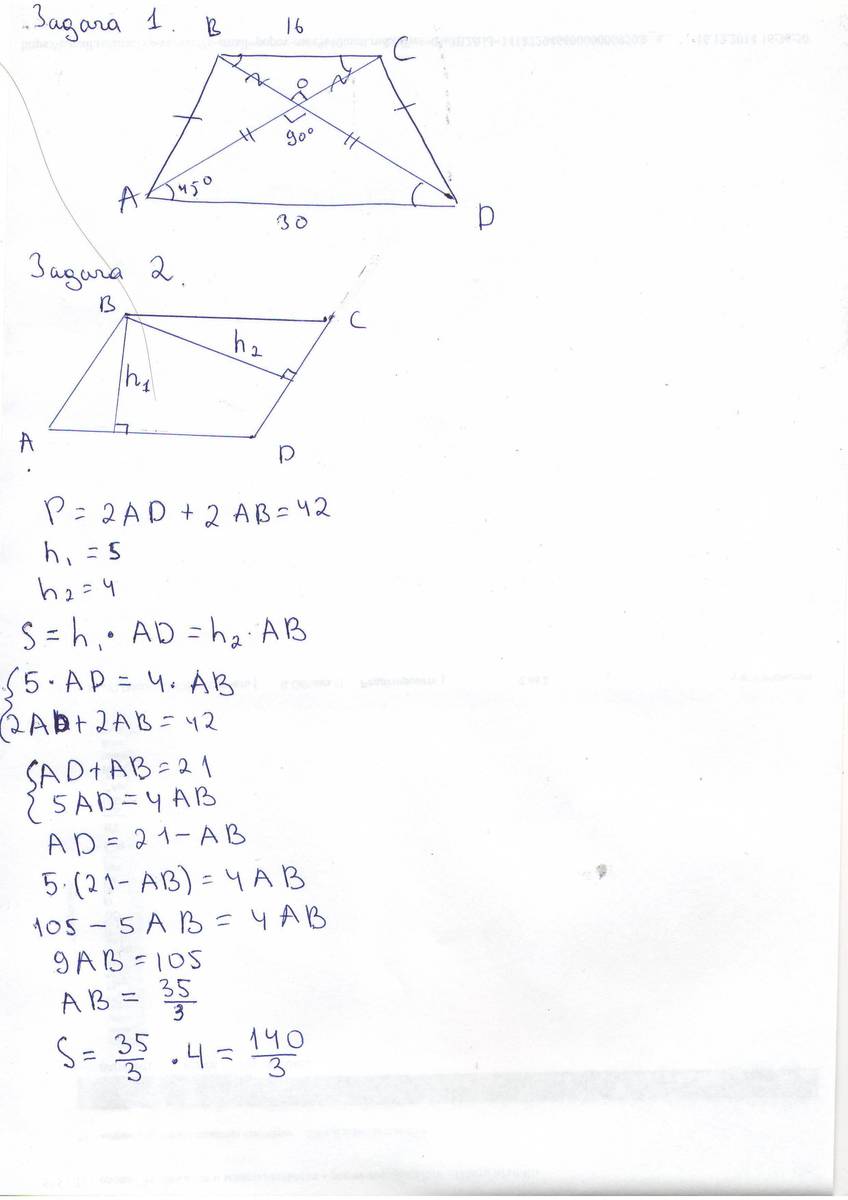 Задача 1.
B 16 C
O
90°
A 45°
30 D
Задача 2.
B C
h₂
h₁
A D
P = 2AD + 2AB = 42
h₁ = 5
h₂ = 4
S = h₁ · AD = h₂ · AB
{5 · AD = 4 · AB
{2AD + 2AB = 42
{AD + AB = 21
{5AD = 4AB
AD = 21 - AB
5·(21 - AB) = 4AB
105 - 5AB = 4AB
9AB = 105
AB = 35/3
S = 35/3 · 4 = 140/3